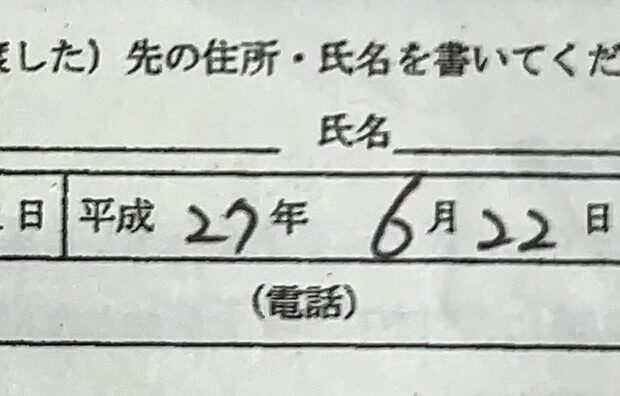 した）先の住所・氏名を書いてくだ
氏名
日 平成 27年 6月 22日
（電話）